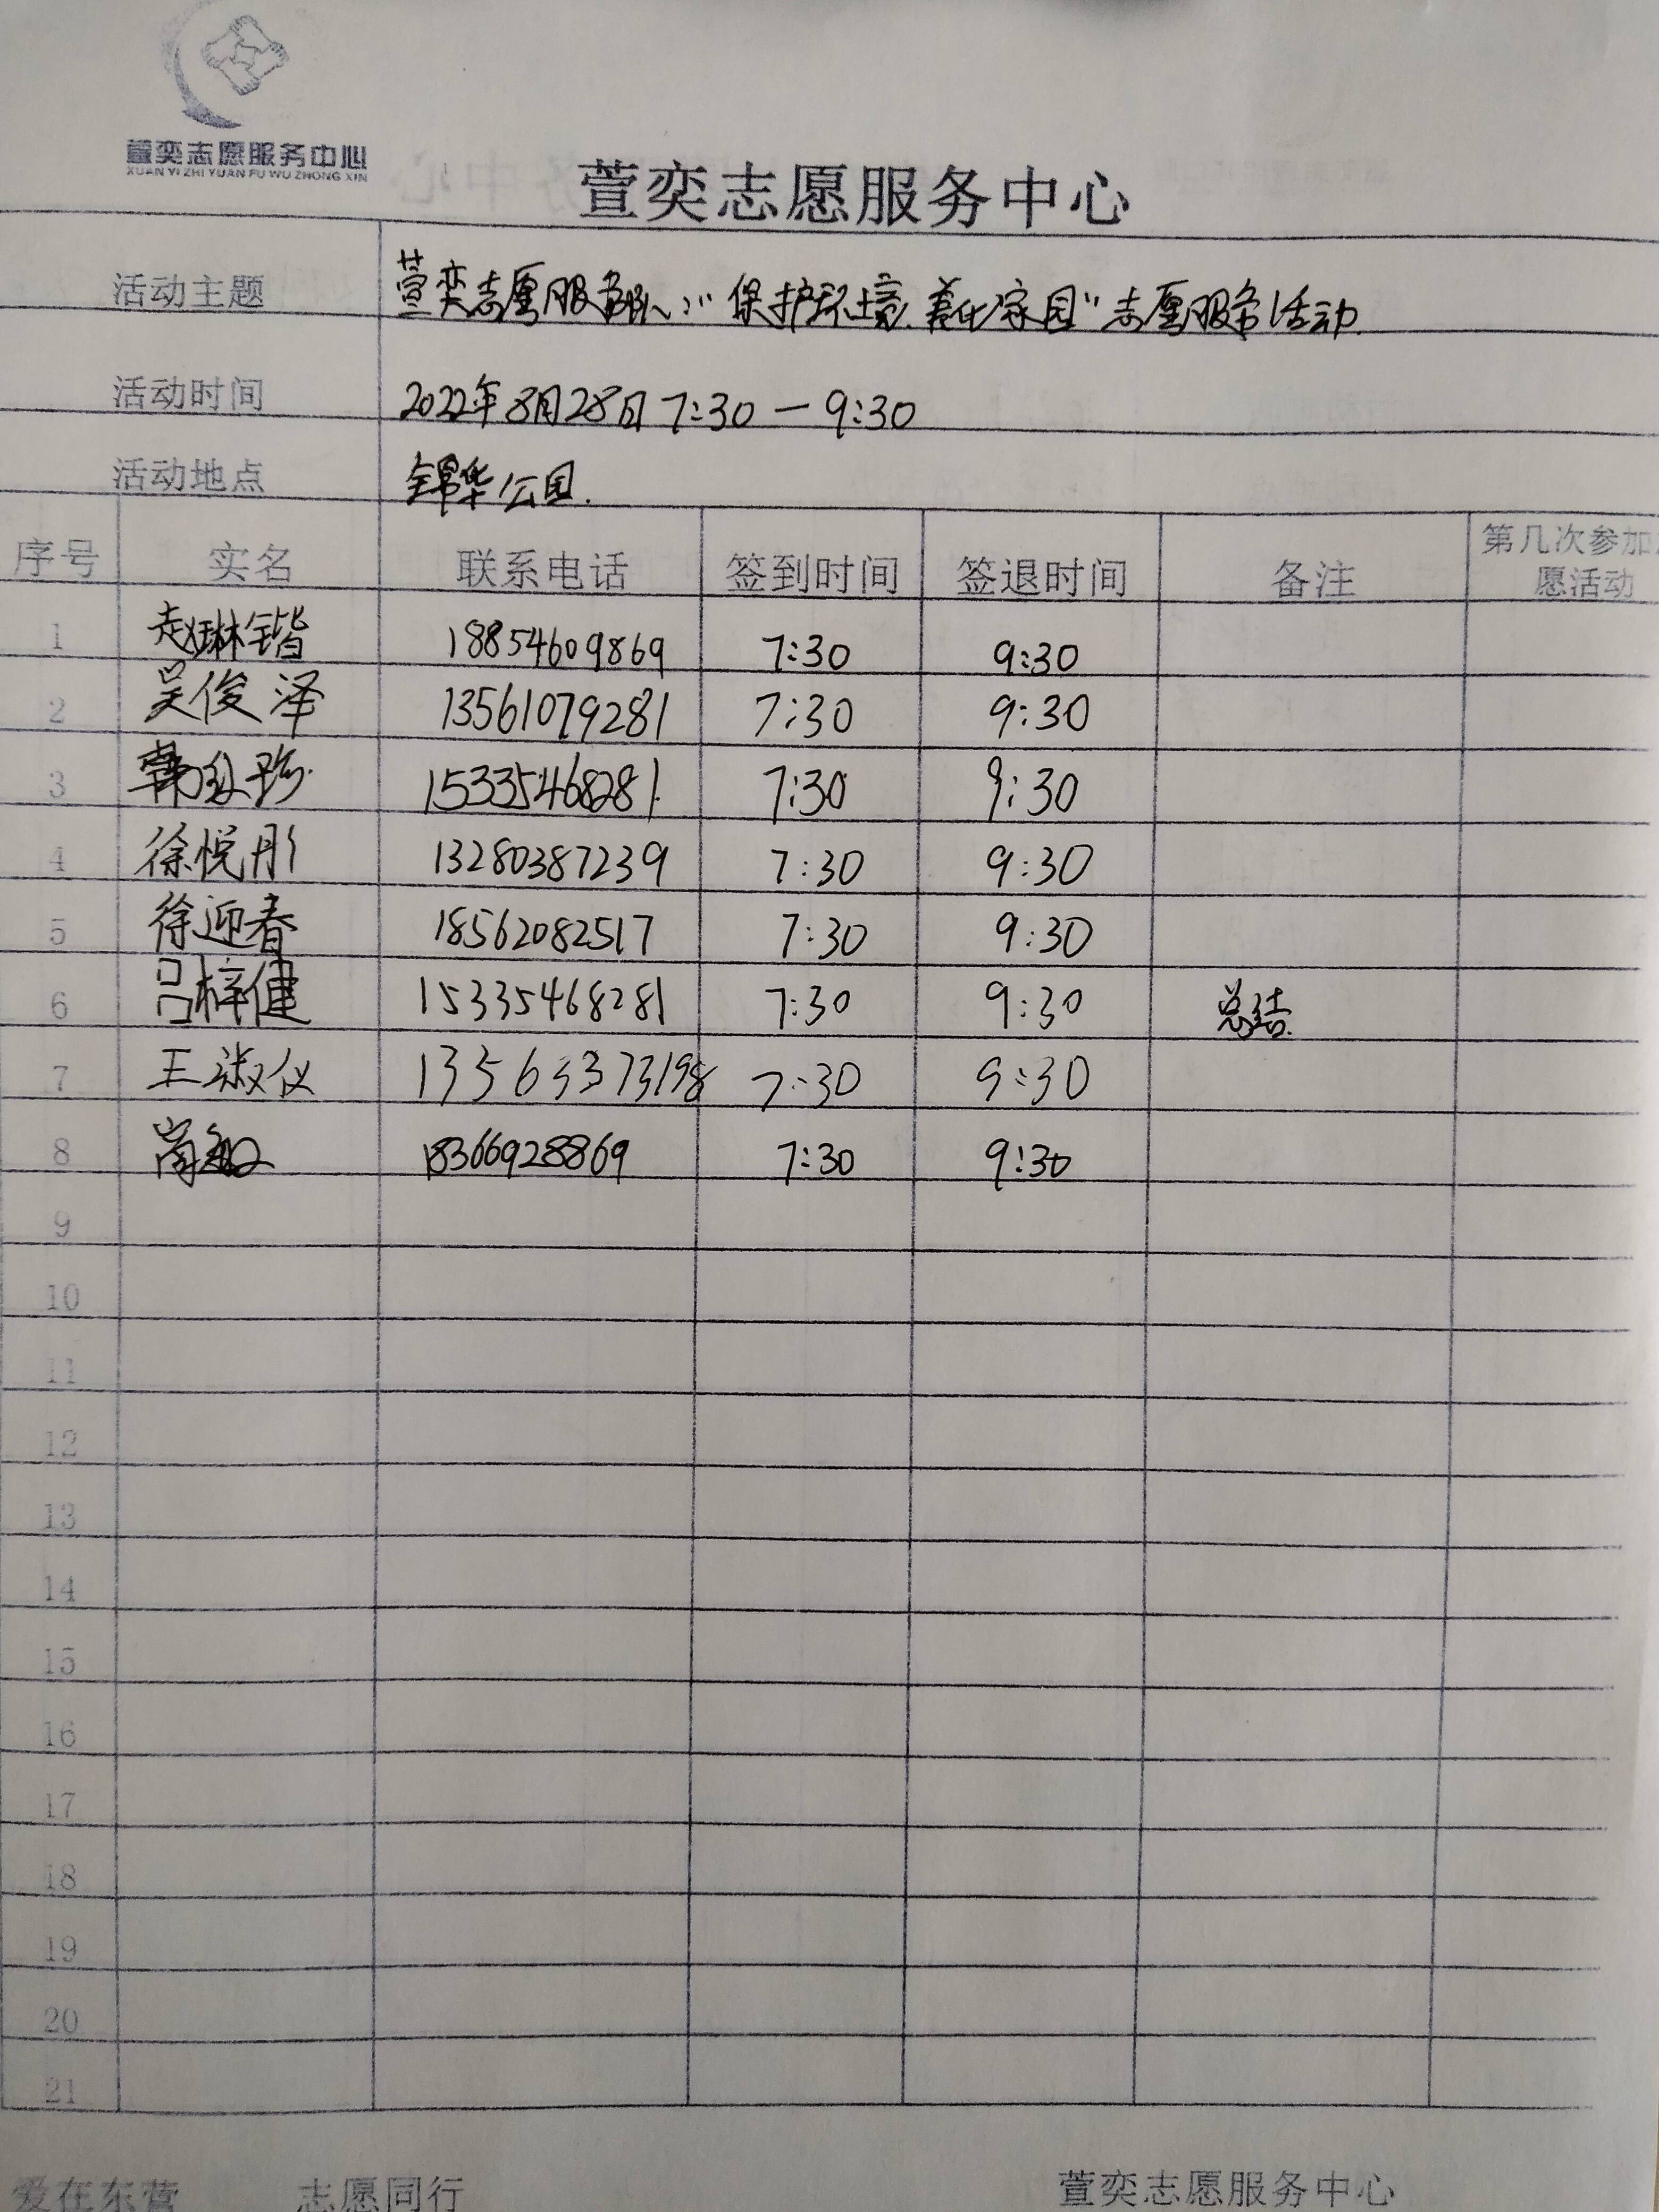 萱奕志愿服务中心
XUAN YI ZHI YUAN FU WU ZHONG XIN
萱奕志愿服务中心
活动主题 萱奕志愿服务队:"保护环境、美化家园"志愿服务活动
活动时间 2022年8月28日 7:30—9:30
活动地点 锦华公园.
序号 实名 联系电话 签到时间 签退时间 备注 第几次参加
愿活动
1 赵琳锴 18854609869 7:30 9:30
2 吴俊泽 13561079281 7:30 9:30
3 韩 15335468281 7:30 9:30
4 徐悦彤 13280387239 7:30 9:30
5 徐迎春 18562082517 7:30 9:30
6 吕梓健 15335468281 7:30 9:30 总结
7 王淑仪 13563373198 7:30 9:30
8 18366928869 7:30 9:30
9
10
11
12
13
14
15
16
17
18
19
20
21
爱在东营 志愿同行 萱奕志愿服务中心